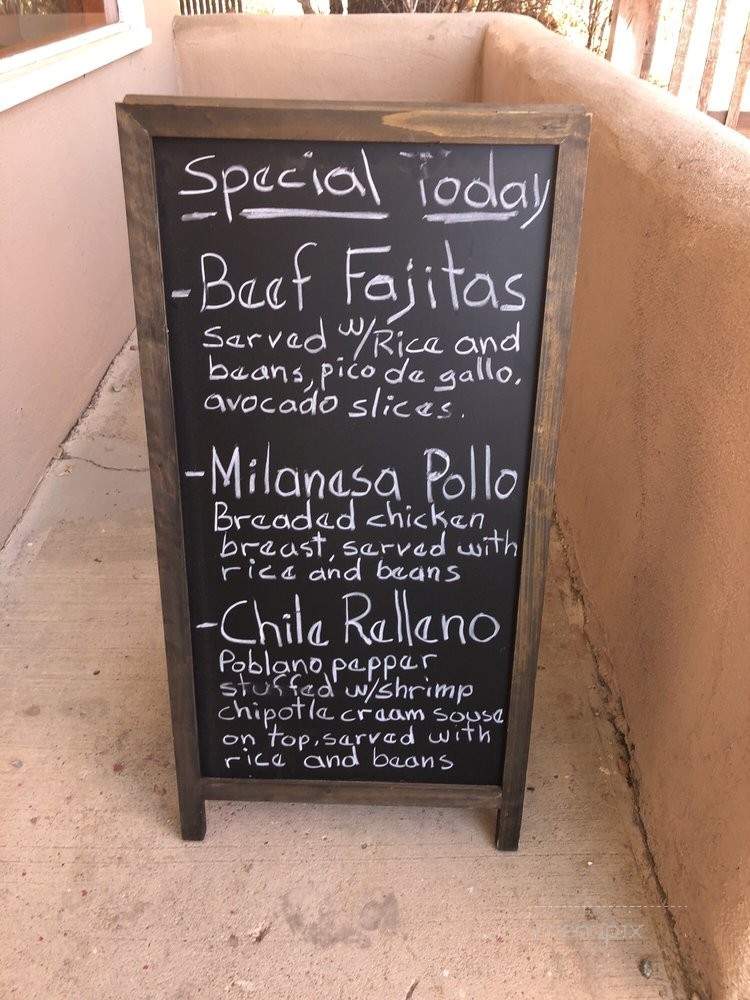 Special Today
-Beef Fajitas
Served w/Rice and
beans, pico de gallo.
avocado slices.
-Milanesa Pollo
Breaded chicken
breast, served with
rice and beans
-Chile Relleno
Poblano pepper
stuffed w/shrimp
chipotle cream souse
on top. served with
rice and beans